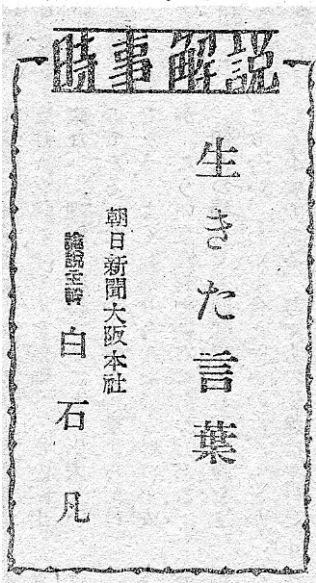 時事解説
生きた言葉
朝日新聞大阪本社
論説主幹 白石凡